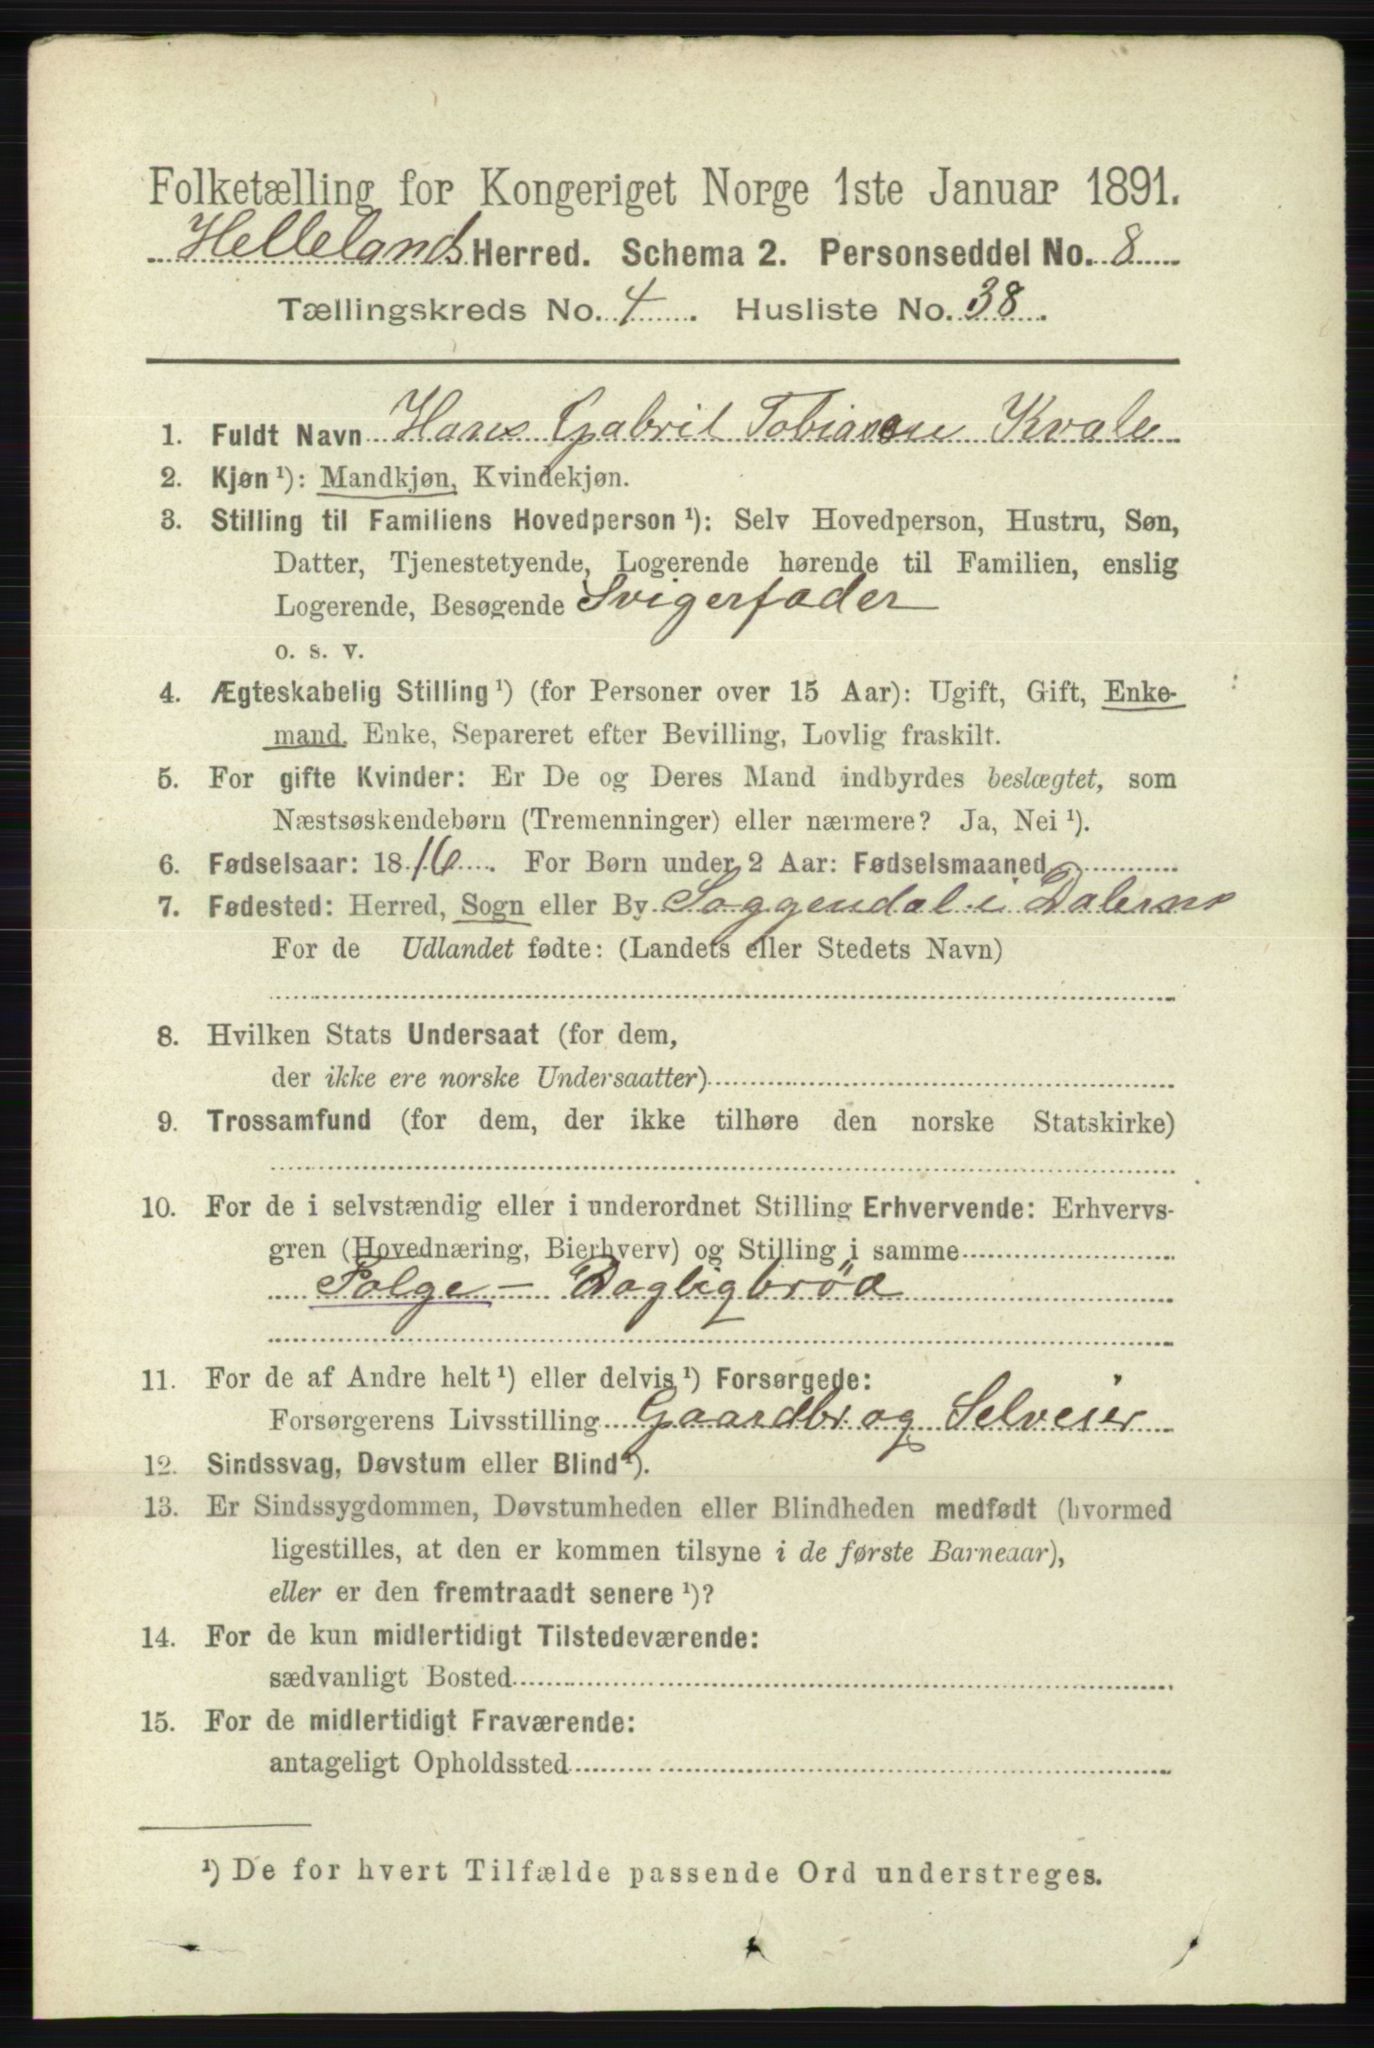 Folketælling for Kongeriget Norge 1ste Januar 1891.
Hellelands Herred. Schema 2. Personseddel No. 8
Tællingskreds No. 4. Husliste No. 38.
1. Fuldt Navn Hans Gabril Tobiasen Kvale
2. Kjøn ¹): Mandkjøn, Kvindekjøn.
3. Stilling til Familiens Hovedperson ¹): Selv Hovedperson, Hustru, Søn,
Datter, Tjenestetyende, Logerende hørende til Familien, enslig
Logerende, Besøgende Svigerfader
o. s. v.
4. Ægteskabelig Stilling ¹) (for Personer over 15 Aar): Ugift, Gift, Enke-
mand, Enke, Separeret efter Bevilling, Lovlig fraskilt.
5. For gifte Kvinder: Er De og Deres Mand indbyrdes beslægtet, som
Næstsøskendebørn (Tremenninger) eller nærmere? Ja, Nei ¹).
6. Fødselsaar: 1816. For Børn under 2 Aar: Fødselsmaaned
7. Fødested: Herred, Sogn eller By Soggendal i Dalerne
For de Udlandet fødte: (Landets eller Stedets Navn)
8. Hvilken Stats Undersaat (for dem,
der ikke ere norske Undersaatter)
9. Trossamfund (for dem, der ikke tilhøre den norske Statskirke)
10. For de i selvstændig eller i underordnet Stilling Erhvervende: Erhvervs-
gren (Hovednæring, Bierhverv) og Stilling i samme
Folge - Dagligbrød
11. For de af Andre helt ¹) eller delvis ¹) Forsørgede:
Forsørgerens Livsstilling Gaardbr. og Selveier
12. Sindssvag, Døvstum eller Blind ¹).
13. Er Sindssygdommen, Døvstumheden eller Blindheden medfødt (hvormed
ligestilles, at den er kommen tilsyne i de første Barneaar),
eller er den fremtraadt senere ¹)?
14. For de kun midlertidigt Tilstedeværende:
sædvanligt Bosted
15. For de midlertidigt Fraværende:
antageligt Opholdssted
¹) De for hvert Tilfælde passende Ord understreges.